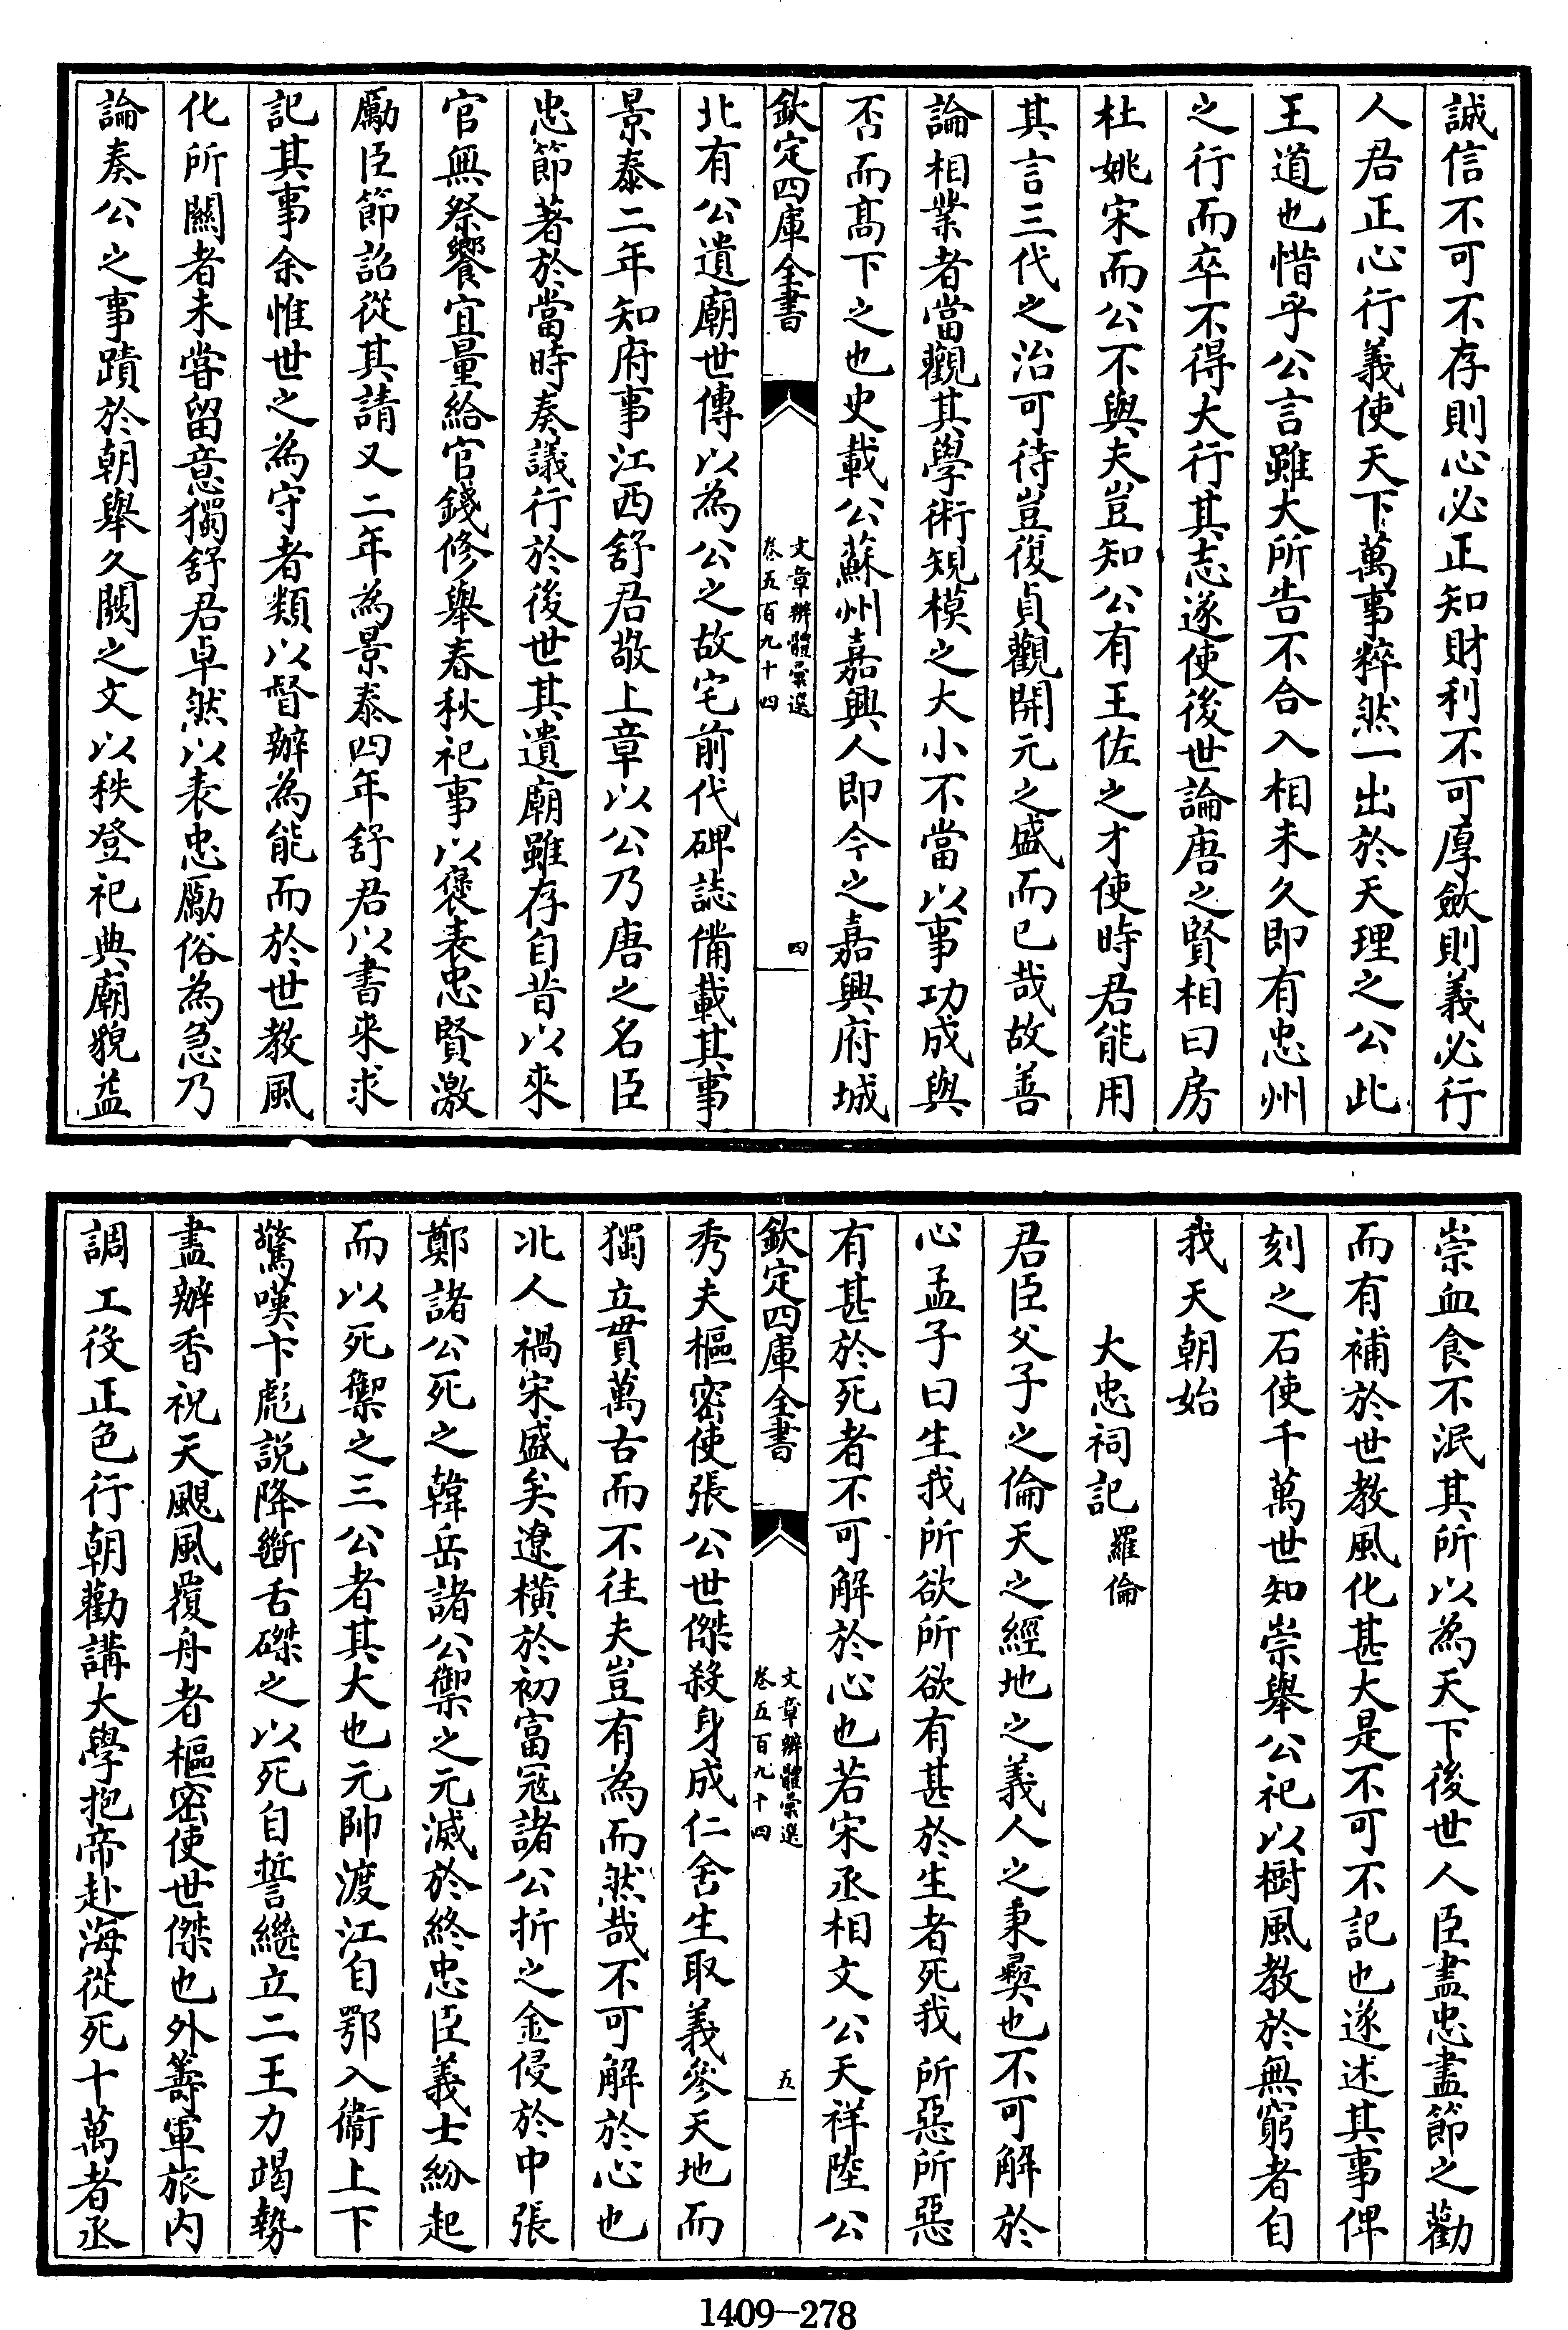 誠信不可不存則心必正知財利不可厚斂則義必行
人君正心行義使天下萬事粹然一出於天理之公此
王道也惜乎公言雖大所告不合入相未久即有忠州
之行而卒不得大行其志遂使後世論唐之賢相曰房
杜姚宋而公不與夫豈知公有王佐之才使時君能用
其言三代之治可待豈復貞觀開元之盛而已哉故善
論相業者當觀其學術規模之大小不當以事功成與
否而髙下之也史載公蘇州嘉興人即今之嘉興府城
欽定四庫全書
文章辨體彚選
卷五百九十四
四
北有公遺廟世傳以為公之故宅前代碑誌備載其事
景泰二年知府事江西舒君敬上章以公乃唐之名臣
忠節著於當時奏議行於後世其遺廟雖存自昔以來
官無祭饗宜量給官錢修舉春秋祀事以褒表忠賢激
勵臣節詔從其請又二年為景泰四年舒君以書来求
記其事余惟世之為守者類以督辦為能而於世教風
化所闗者未嘗留意獨舒君卓然以表忠勵俗為急乃
論奏公之事蹟於朝舉久闕之文以秩登祀典廟貌益
崇血食不泯其所以為天下後世人臣盡忠盡節之勸
而有補於世教風化甚大是不可不記也遂述其事俾
刻之石使千萬世知崇舉公祀以樹風教於無窮者自
我天朝始
大忠祠記 羅倫
君臣父子之倫天之經地之義人之秉彛也不可解於
心孟子曰生我所欲所欲有甚於生者死我所惡所惡
有甚於死者不可解於心也若宋丞相文公天祥陸公
欽定四庫全書
文章辨體彚選
卷五百九十四
五
秀夫樞密使張公世傑殺身成仁舍生取義參天地而
獨立貫萬古而不往夫豈有為而然哉不可解於心也
北人禍宋盛矣遼橫於初富冦諸公折之金侵於中張
鄭諸公死之韓岳諸公禦之元滅於終忠臣義士紛起
而以死禦之三公者其大也元帥渡江自鄂入衞上下
驚嘆卞彪説降斷舌磔之以死自誓繼立二王力竭勢
盡辦香祝天颶風覆舟者樞密使世傑也外籌軍旅内
調工役正色行朝勸講大學抱帝赴海從死十萬者丞
1409-278